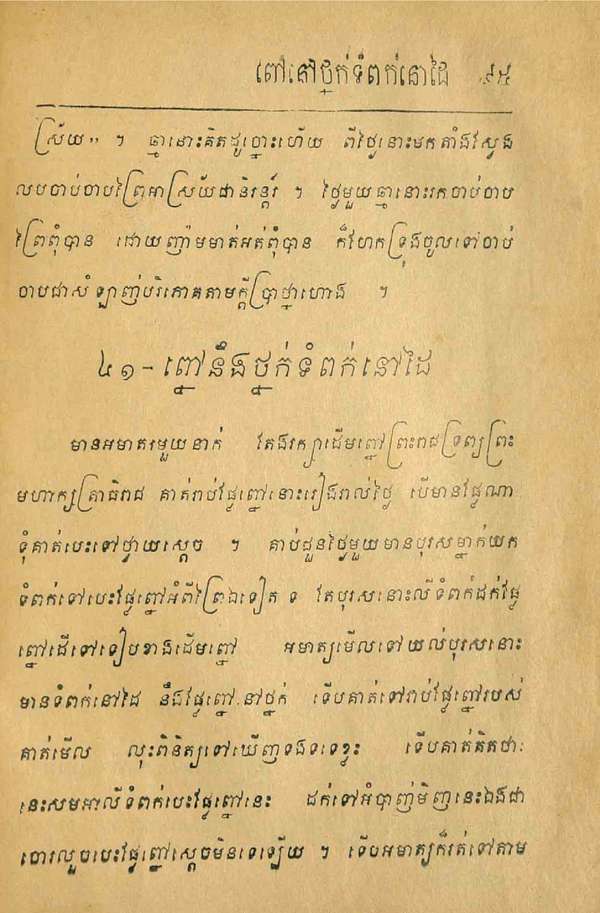 ពៅនៅថ្នក់ទំពក់នោដៃ ៩៥
ស្រ័យ" ។ ឆ្មាដោះគិតដូច្នោះហើយ ពីថ្ងៃនោះមកតាំងស្វែង
លបចាប់ចាបព្រៃអាស្រ័យជានិរន្តរ៍ ។ ថ្ងៃមួយឆ្មានោះរកចាប់ចាប
ព្រៃពុំបាន ដោយញ៉ាមមាត់អត់ពុំបាន ក៏ហែកទ្រុងចូលទៅចាប់
ចាបជាសំឡាញ់បរិភោគតាមក្ដីប្រាថ្នាហោង ។
៤១-ព្នៅនឹងថ្នក់ទំពក់នៅដៃ
មានអមាត្យមួយនាក់ តែងរក្សាដើមព្នៅព្រះរាជទ្រព្យព្រះ
មហាក្សត្រាធិរាជ គាត់រាប់ផ្លែព្នៅនោះរៀងរាល់ថ្ងៃ បើមានផ្លែណា
ទុំគាត់បេះទៅថ្វាយស្ដេច ។ គាប់ជួនថ្ងៃមួយមានបុរសម្នាក់យក
ទំពក់ទៅបេះផ្លែព្នៅអំពីព្រៃឯទៀត ១ តែបុរសនោះលីទំពក់ដក់ផ្លែ
ព្នៅដើទៅទៀបខាងដើមព្នៅ អមាត្យមើលទៅយល់បុរសនោះ
មានទំពក់នៅដៃ នឹងផ្លែព្នៅនៅថ្នក់ ទើបគាត់ទៅរាប់ផ្លែព្នៅរបស់
គាត់មើល លុះពិនិត្យទៅឃើញទងទទេខ្វះ ទើបគាត់គិតថាៈ
នេះសមអាលីទំពក់បេះផ្លែព្នៅនេះ ដក់ទៅអំបាញ់មិញនេះឯងជា
ចោរលួចបេះផ្លែព្នៅស្ដេចមិនទេឡើយ ។ ទើបអមាត្យក៏រត់ទៅតាម